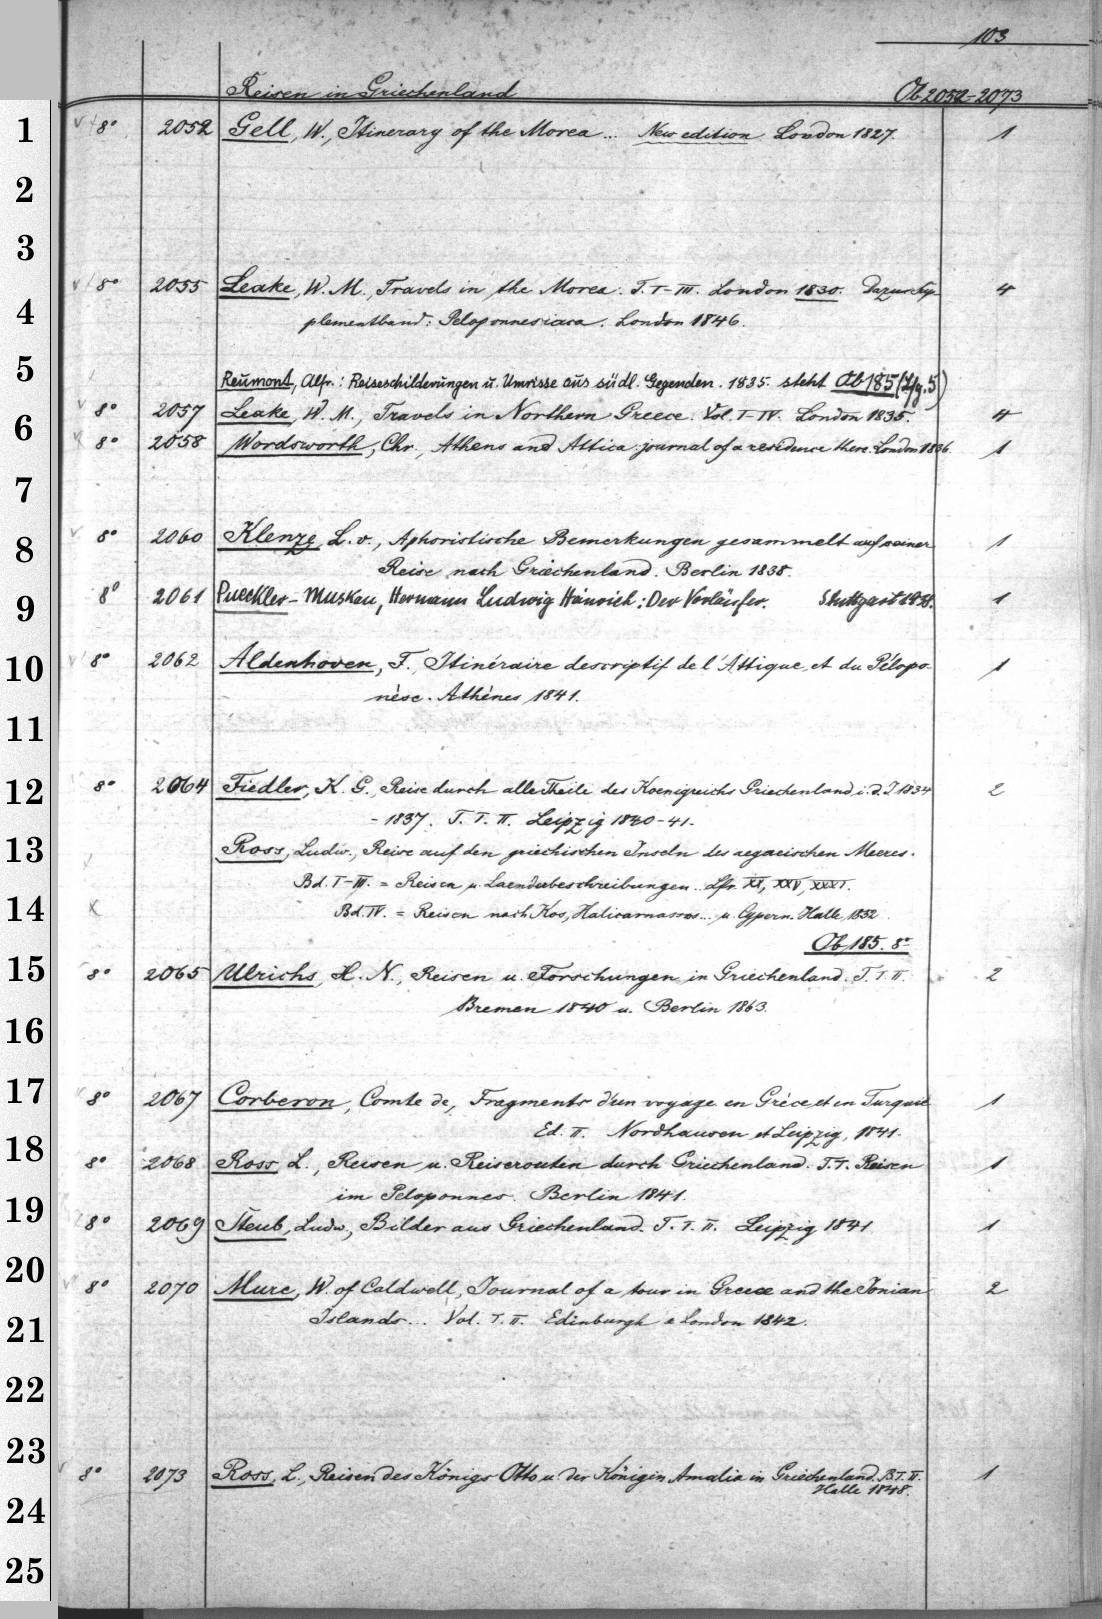 103
Reisen in Griechenland Ob 2052-2073
1 8° 2052 Gell, W., Itinerary of the Morea... New edition London 1827. 1
2
3
8° 2055 Leake, W. M., Travels in the Morea. T. I-III. London 1830. Dazu Sup- 4
4 plementband: Peloponnesiaca. London 1846.
5 Reumont, Alfr.: Reiseschilderungen u. Umrisse aus südl. Gegenden. 1835. steht Ob 185 (Lfg. 5)
8° 2057 Leake, W. M., Travels in Northern Greece. Vol. I-IV. London 1835. 4
6
8° 2058 Wordsworth, Chr., Athens and Attica: journal of a residence there. London 1836. 1
7
8 8° 2060 Klenze, L. v., Aphoristische Bemerkungen gesammelt auf seiner 1
Reise nach Griechenland. Berlin 1838.
9 8° 2061 Pueckler-Muskau, Hermann Ludwig Heinrich: Der Vorläufer. Stuttgart 1838. 1
10 8° 2062 Aldenhoven, F., Itinéraire descriptif de l'Attique et du Pélopo- 1
nèse. Athènes 1841.
11
12 8° 2064 Fiedler, K. G., Reise durch alle Theile des Koenigreichs Griechenland i. d. J. 1834 2
-1837. T. I. II. Leipzig 1840-41.
13 Ross, Ludw., Reise auf den griechischen Inseln des aegaeischen Meeres.
Bd. I-III. = Reisen u. Laenderbeschreibungen. Lfr. XI, XXV, XXXI.
14 Bd. IV. = Reisen nach Kos, Halicarnassos... u. Cypern. Halle 1852
Ob 185. 8°
15 8° 2065 Ulrichs, H. N., Reisen u. Forschungen in Griechenland. T. I. II. 2
Bremen 1840 u. Berlin 1863.
16
17 8° 2067 Corberon, Comte de, Fragments d'un voyage en Grèce et en Turquie 1
Ed. II. Nordhausen et Leipzig, 1841.
18 8° 2068 Ross L., Reisen u. Reiserouten durch Griechenland. T. I. Reisen 1
im Peloponnes. Berlin 1841.
19 8° 2069 Steub, Ludw., Bilder aus Griechenland. T. I. II. Leipzig 1841 1
20 8° 2070 Mure, W. of Caldwell, Journal of a tour in Greece and the Ionian 2
21 Islands... Vol. I. II. Edinburgh & London 1842.
22
23
8° 2073 Ross, L., Reisen des Königs Otto u. der Königin Amalia in Griechenland. B I. II. 1
Halle 1848.
24
25